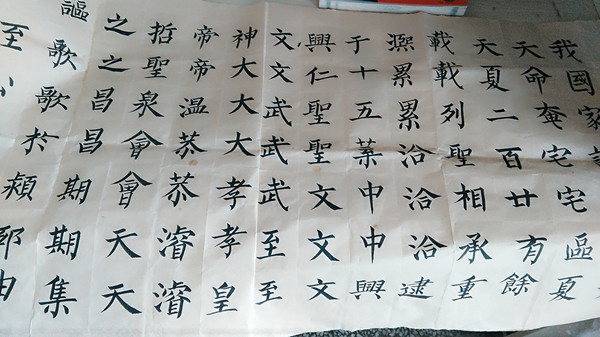 我國家
天命奄宅宅區夏
天夏二百廿有餘
載載列聖相承重
熙累累洽洽洽逮
于十五葉中中興
興仁聖聖文文文
文文武武武至至
神大大大孝孝皇
帝帝温恭恭濬濬
哲聖泉會會天天
之之昌昌期期集
謳歌歌於潁
至